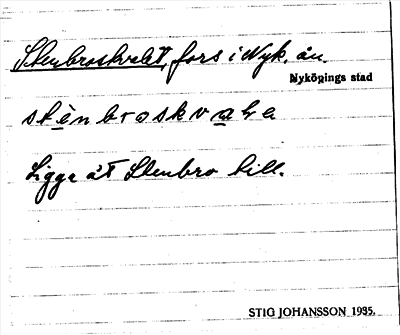 Stenbroskvalet, fors i Nyk. ån.
Nyköpings stad
stènbroskvaLe
Ligga åt Stenbro till.
STIG JOHANSSON 1935.